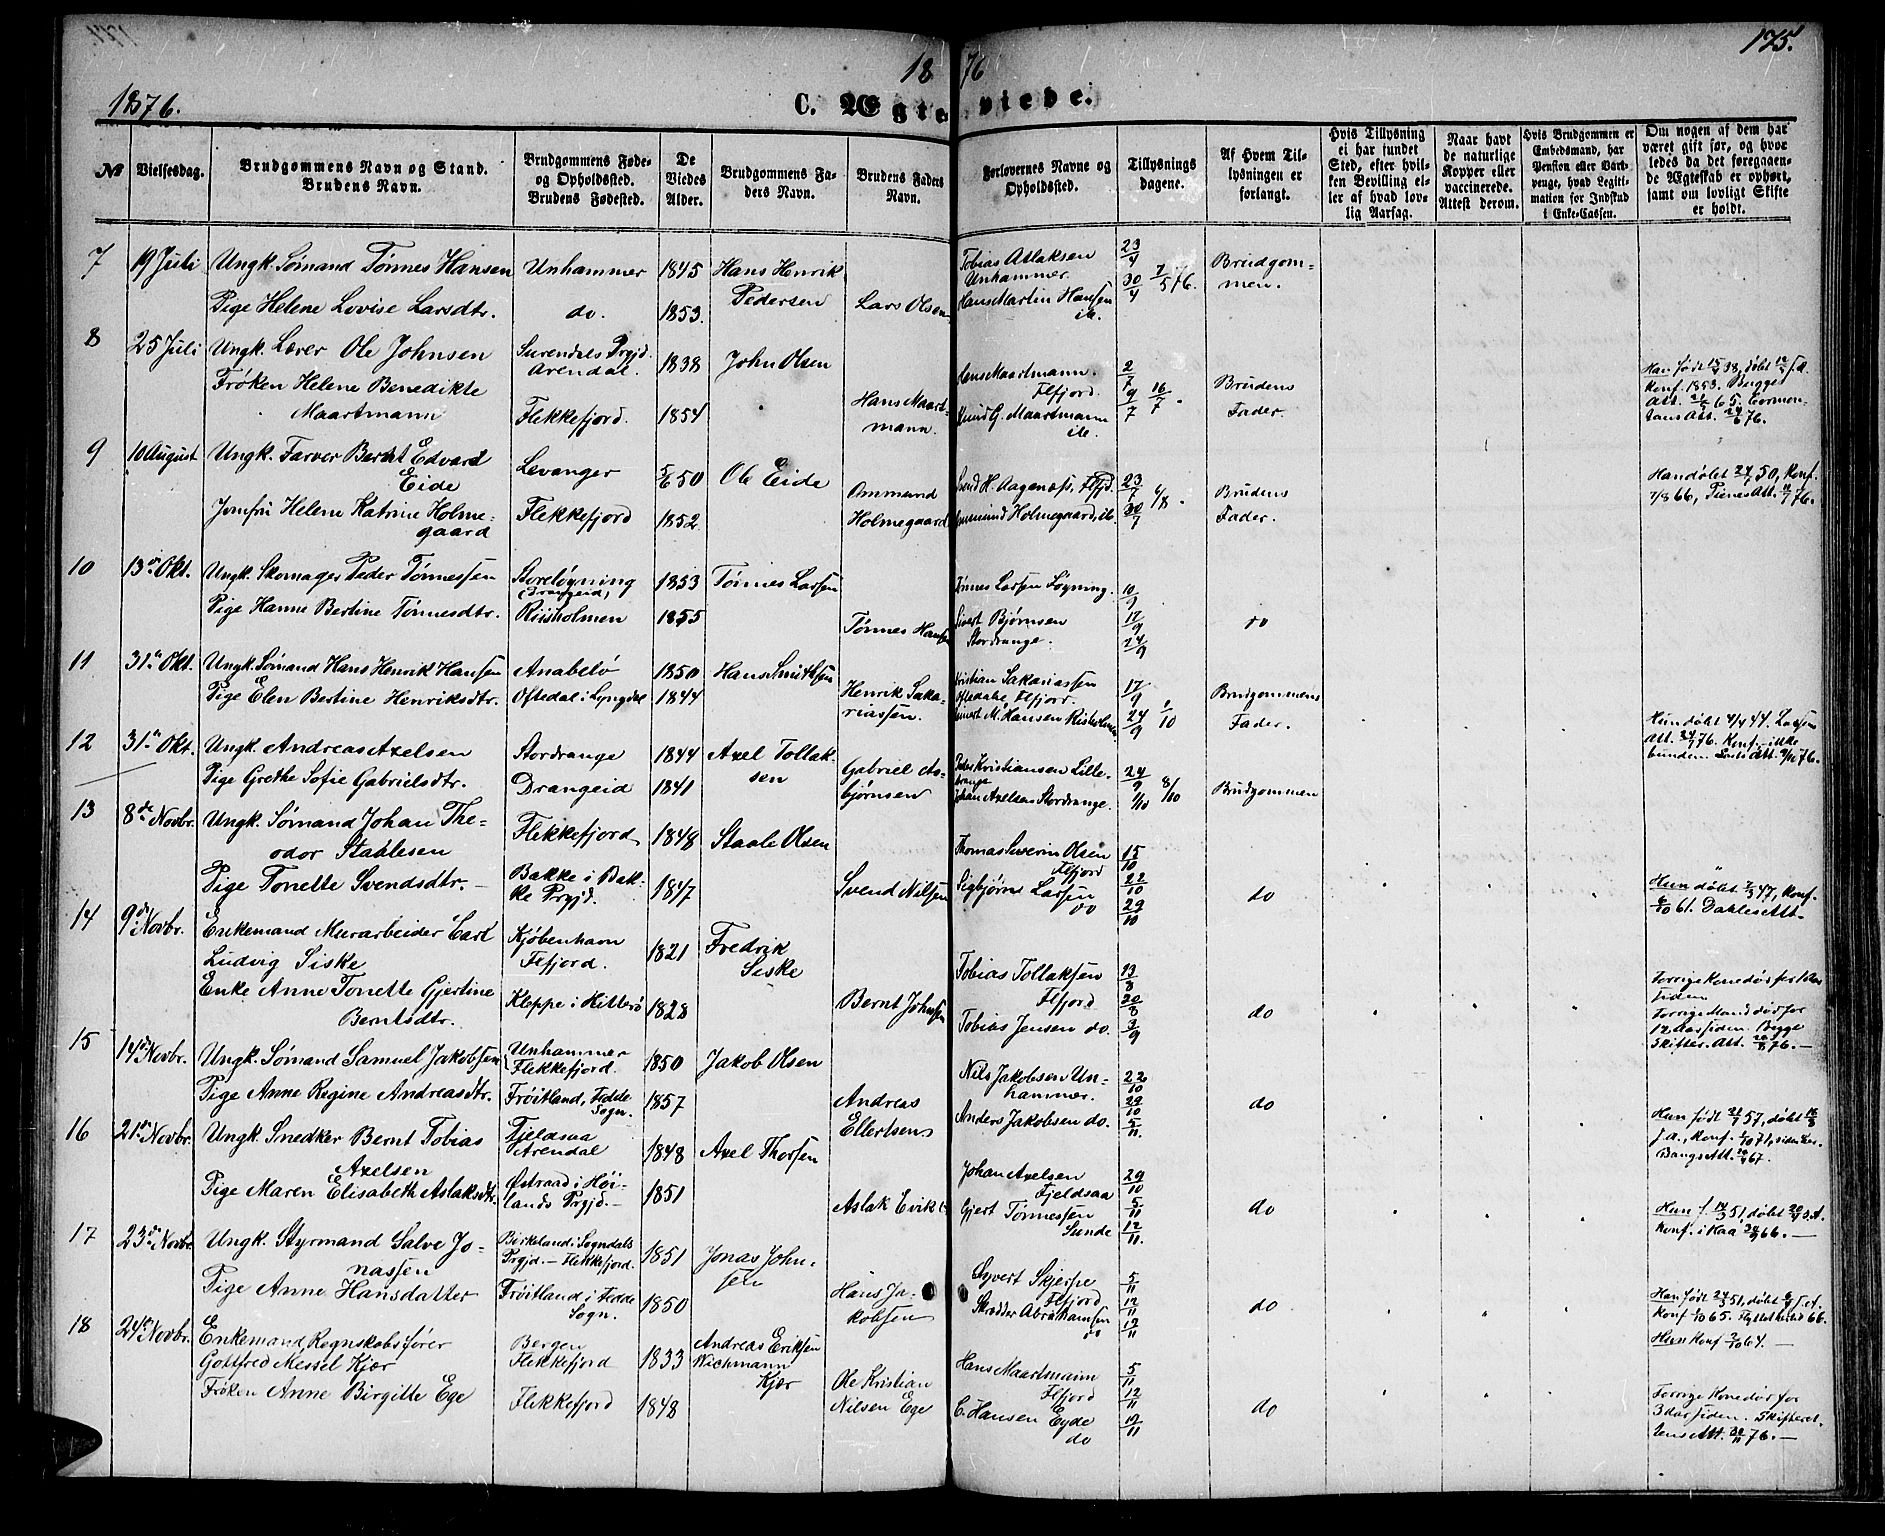 175.
18 76
1876.
C. Ægteviede.
№
Vielsesdag.
Brudgommens Navn og Stand.
Brudens Navn.
Brudgommens Føde-
og Opholdssted.
Brudens Fødested.
De
Viedes
Alder.
Brudgommens Fa-
ders Navn.
Brudens Faders
Navn.
Forlovernes Navne og
Opholdssted.
Tillysnings
dagene.
Af Hvem Til-
lysningen er
forlangt.
Hvis Tillysning
ei har fundet
Sted, efter hvil-
ken Bevilling el-
ler af hvad lov-
lig Aarsag.
Naar havt
de naturlige
Kopper eller
vaccinerede.
Attest derom.
Hvis Brudgommen er
Embedsmand, har
Pension eller Vart-
penge, hvad Legiti-
mation for Indskud
i Enke-Cassen.
Om nogen af dem har
været gift før, og hvor
ledes da det foregaaen-
de Ægteskab er ophørt,
samt om lovligt Skifte
er holdt.
7 19 Juli Ungk. Sømand Tønnes Hansen Unhammer 1845 Hans Henrik Pedersen
Pige Helene Lovise Larsdtr. do. 1853. Lars Olsen
Tobias Atlaksen Unhammer. 23/4 30/4 7/5 76. Brudgom-
men.
Hans Martin Hansen ib.
8 25 Juli Ungk. Lærer Ole Johnsen Surendals Prgjd. Arendal. 1838 John Olsen
Frøken Helene Benedikte
Maartmann Flekkefjord. 1854 Hans Maart-
mann.
Hans Maartmann. Flfjord 2/7 9/7 16/7 Brudens
Fader.
Knud G. Maartmann ib.
Han født 15/4 38, døbt
Konf. 1853. Bugge
Att. 65.
9 10 August Ungk. Farver Bernt Edvard
Eide Levanger 5/6 50 Ole Eide
Jomfru Helene Katrine Holme-
gaard Flekkefjord 1852. Ommund
Holmegaard
Svend H. Aagenæs, Flfjd. 23/7 30/7 6/8 Brudens
Fader.
Ommund Holmegaard, ib.
Han døbt 50, Konf.
7/8 66, 76.
10 13de Okt. Ungk. Skomager Peder Tønnessen Storeløgning
(Drangeid) 1853 Tønnes Larsen
Pige Hanne Bertine Tønnesdtr. Riisholmen 1855 Tønnes Hansen
Tønnes Larsen Løgning. 10/9
Sivert Bjørnsen 17/9 do
Stordrange. 24/9
11 31te Okt. Ungk. Sømand Hans Henrik Hansen Anabelø 1850 Hans Smithsen
Pige Elen Bertine Henriksdtr. Oftedal i Lyngdal 1844 Henrik Saka-
riassen.
Kristian Sakariassen
Oftedahl, Flfjord. 17/9 24/9 1/10 Brudgommens
Fader.
M. Hansen Risholmen
Hun døbt 44.
Att. 76. Konf. ikke
funden.
12 31te Okt. Ungk. Andreas Axelsen Stordrange 1844 Axel Tollak-
sen
Pige Grethe Sofie Gabrielsdtr. Drangeid 1841 Gabriel As-
bjørnsen
Peder Kristiansen Lille-
drange 24/9 1/10 8/10 Brudgommen
Johan Axelsen Stordrange.
13 8de Novbr. Ungk. Sømand Johan The-
odor Staalesen Flekkefjord 1848 Staale Olsen
Pige Tonette Svendsdtr. Bakke i Bak-
ke Prgjd. 1847 Svend Nilsen
Thomas Severin Olsen 15/10
Flfjord 22/10
Sigbjørn Larsen
do 29/10 do
Hun døbt 47, Konf.
61. Dahles Att.
14 9de Novbr. Enkemand Murarbeider Carl
Ludvig Siske Kjøbenhavn
Flfjord. 1821 Fredrik
Siske
Enke Anne Tonette Gjertine
Berntsdtr. Kleppe i Hitterø 1828 Bernt Johnsen
Tobias Tollaksen 13/8
Flfjord 20/8 do
Tobias Jensen do. 3/9
Forrige Kone død for 1 Aar
siden
Forrige Mand død for
12 Aar siden. Begge
Skifter. Att. 76.
15 14de Novbr. Ungk. Sømand Samuel Jakobsen Unhammer
Flekkefjord. 1850 Jakob Olsen
Pige Anne Regine Andreasdtr. Frøitland, Fedde
Sogn. 1857 Andreas
Ellertsen
Nils Jakobsen Un-
hammer. 22/10 29/10 do
Anders Jakobsen do. 5/11
Hun født 57, døbt
s. A., Konf. 71, siden
Bangs Att. 67.
16 21de Novbr. Ungk. Snedker Bernt Tobias
Axelsen Fjeldsaa
Arendal 1848 Axel Thorsen
Pige Maren Elisabeth Aslaksdtr. Østraad i Høi-
lands Prgjd. 1851 Aslak Eriks
Johan Axelsen 29/10
Fjeldsaa
Gjert Tønnessen 5/11 do
Sunde 12/11.
Hun f. 51, døbt s. A.
Konf. i Kaa 66.
17 23de Novbr. Ungk. Styrmand Salve Jo-
nassen Birkeland i Sogndals
Prgjd. – Flekkefjord. 1851 Jonas John-
sen
Pige Anne Hansdatter Frøitland i Fedde
Sogn. 1850 Hans Ja-
kobsen
Syvert Skjerpe 5/11
Flfjord 12/11 do
Skrædder Abrahamsen
do 19/11
Han født 51, døbt s. A.
Konf. 65. Flyttet hertil 66.
Hun Konf. 64.
18 24de Novbr. Enkemand, Regnskabsfører
Gottfred Messel Kjær Bergen
Flekkefjord 1833 Andreas Eriksen
Wichmann
Kjær
Frøken Anne Birgitte Ege Flekkefjord 1848 Ole Kristian
Nilsen Ege
Hans Maartmann 5/11
Flfjord 12/11 do
C. Hansen Eyde 19/11
do
Forrige Kone død for
3 Aar siden. Skifteret-
tens Att. 76.